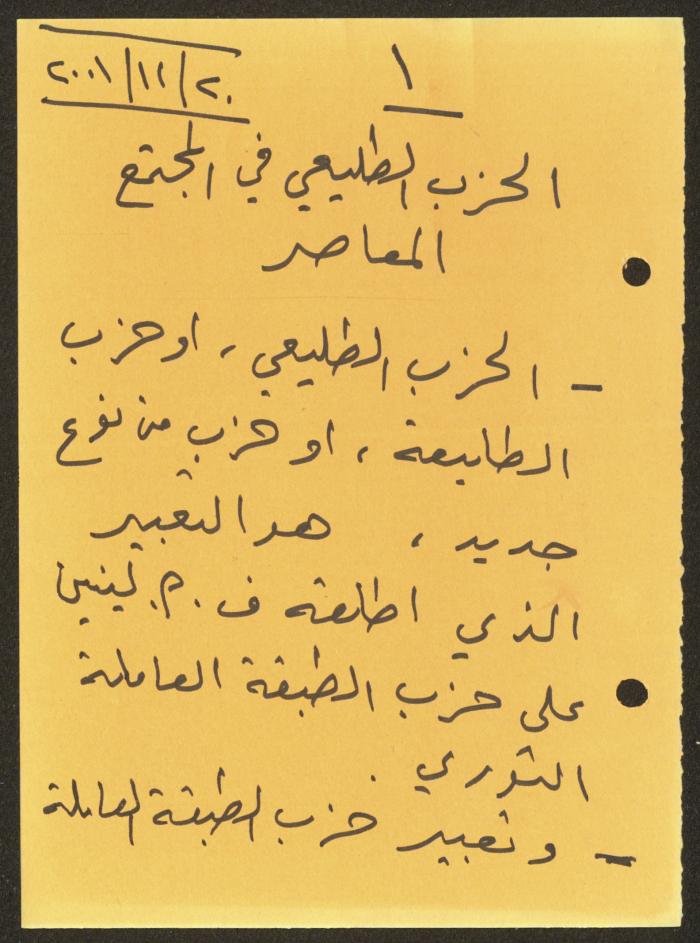 ١
٢٠/١٢/٢٠٠١
الحزب الطليعي في المجتمع
المعاصر
– الحزب الطليعي، او حزب
الطليعة، او حزب من نوع
جديد، هو التعبير
الذي اطلقه ف.م. لينين
على حزب الطبقة العاملة
الثوري.
– وتعبير حزب الطبقة العاملة